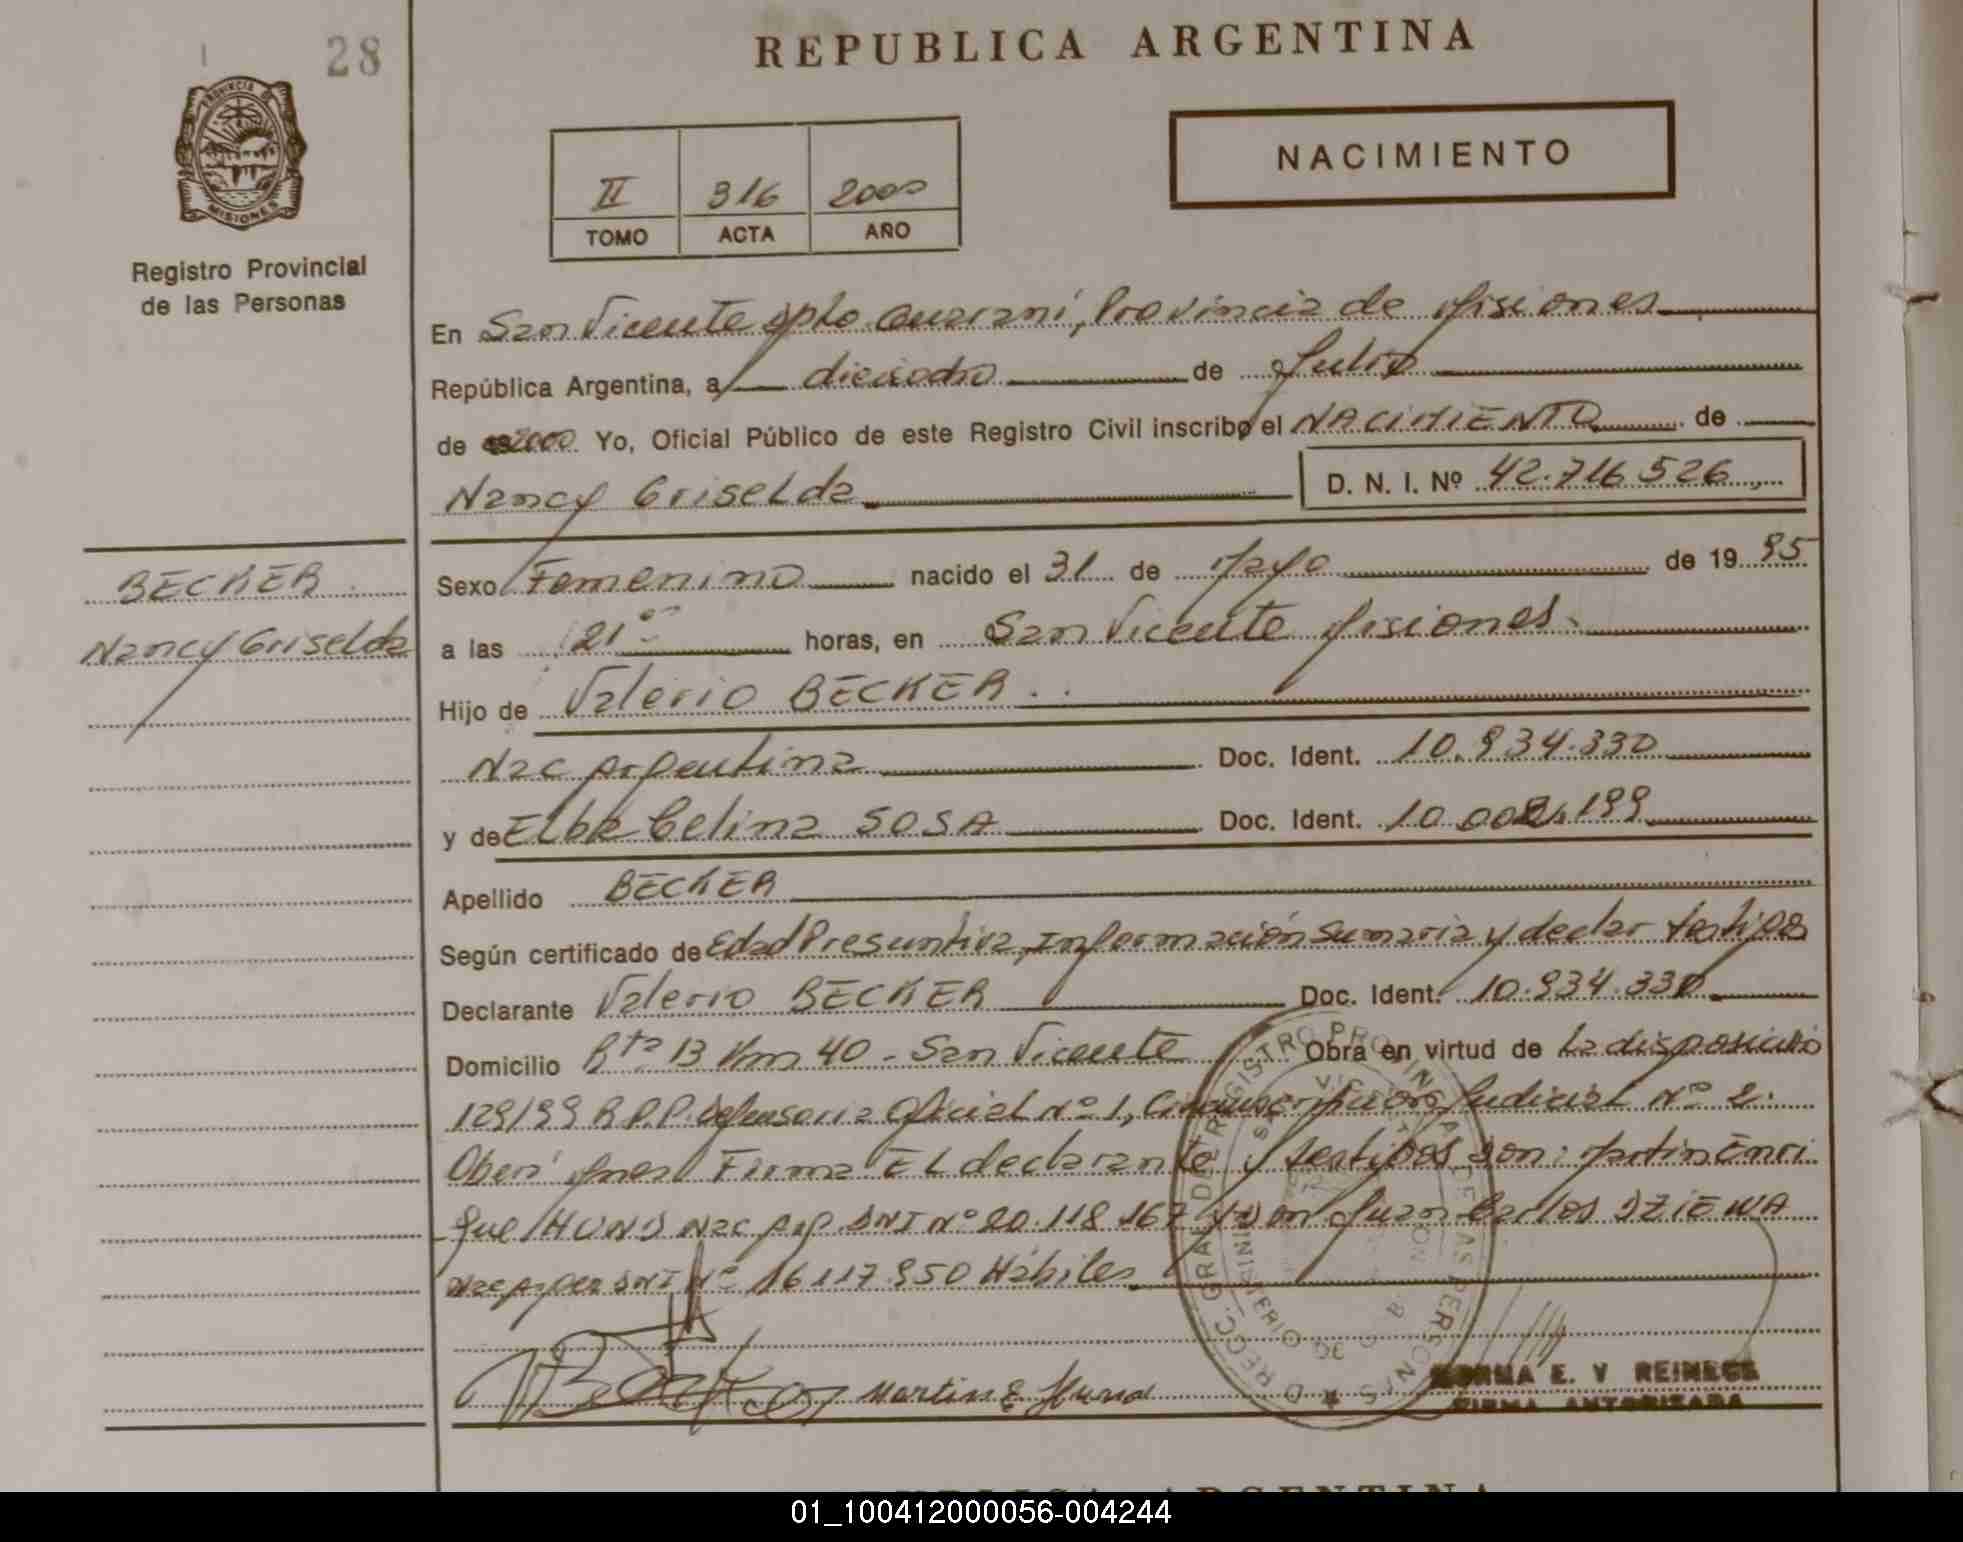 28
REPUBLICA ARGENTINA
PROVINCIA DE
MISIONES
Registro Provincial
de las Personas
NACIMIENTO
II 316 2000
TOMO ACTA AÑO
En San Vicente dpto Guaraní, Provincia de Misiones
República Argentina, a dieciocho de Julio
de 2000 Yo, Oficial Público de este Registro Civil inscribo el NACIMIENTO de
Nancy Griselda D. N. I. Nº 42.716.526
BECKER
Nancy Griselda
Sexo Femenino nacido el 31 de Mayo de 19 95
a las 21 horas, en San Vicente Misiones.
Hijo de Valerio BECKER
Nac Argentina Doc. Ident. 10.934.330
y de Elba Celina SOSA Doc. Ident. 10.002.199
Apellido BECKER
Según certificado de Edad Presuntiva, Información Sumaria y declar testigos
Declarante Valerio BECKER Doc. Ident. 10.934.330
Domicilio Rta 13 Km 40 - San Vicente Obra en virtud de La disposición
129/99 R.P.P. Defensoria Oficial Nº 1, Circunscripción Judicial Nº 2.
Oberá Mnes Firma El declarante y testigos son: Martin Enri
que HUND Nac Arg. DNI Nº 20.118.167 y Don Juan Carlos DZIEWA
Nac Argen DNI Nº 16.117.950 Hábiles
Martin E Hund
DIRECC. GRAL. DEL REGISTRO PROVINCIAL DE LAS PERSONAS
SAN VICENTE
MINISTERIO DE GOBIERNO
NORMA E. V REINECK
FIRMA AUTORIZADA
REPUBLICA ARGENTINA
01_100412000056-004244